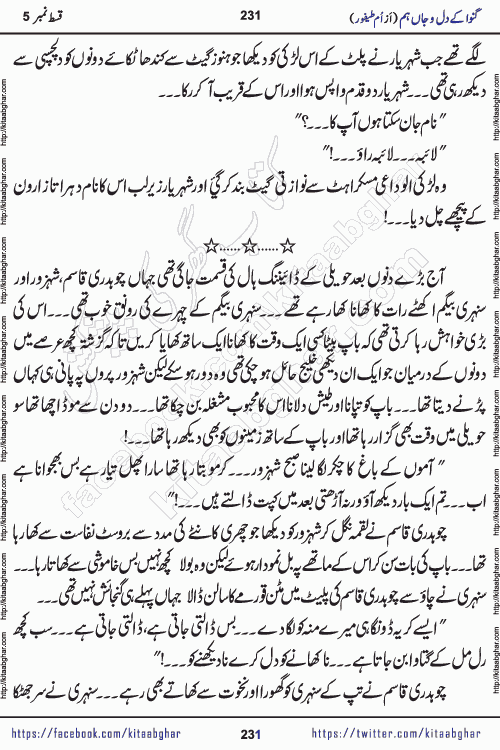 گنوا کے دل و جاں ہم (از اُم طیفور)
231
قسط نمبر 5
لگے تھے جب شہریار نے پلٹ کے اس لڑکی کو دیکھا جو ہنوز گیٹ سے کندھا ٹکائے دونوں کو دلچسپی سے
دیکھ رہی تھی۔۔۔ شہریار دو قدم واپس ہوا اور اس کے قریب آ کر رکا۔۔۔
"نام جان سکتا ہوں آپ کا۔۔۔؟"
"لائبہ۔۔۔ لائبہ راؤ۔۔۔!"
وہ لڑکی الوداعی مسکراہٹ سے نوازتی گیٹ بند کر گئی اور شہریار زیر لب اس کا نام دہراتا زارون
کے پیچھے چل دیا۔۔۔!
☆......☆......☆
آج بڑے دنوں بعد حویلی کے ڈائیننگ ہال کی قسمت جاگی تھی جہاں چوہدری قاسم، شہزور اور
سنہری بیگم اکھٹے رات کا کھانا کھا رہے تھے۔۔۔ سنہری بیگم کے چہرے کی رونق خوب تھی۔۔۔ اس کی
بڑی خواہش رہا کرتی تھی کہ باپ بیٹا کسی ایک وقت کا کھانا ایک ساتھ کھایا کریں تا کہ گزشتہ کچھ عرصے میں
دونوں کے درمیان جو ایک ان دیکھی خلیج حائل ہو چکی تھی وہ دور ہو سکے لیکن شہزور پروں پہ پانی ہی کہاں
پڑنے دیتا تھا۔۔۔ باپ کو تپانا اور طیش دلانا اس کا محبوب مشغلہ بن چکا تھا۔۔۔ دو دن سے موڈ اچھا تھا سو
حویلی میں وقت بھی گزار رہا تھا اور باپ کے ساتھ زمینوں کو بھی دیکھ رہا تھا۔۔۔!
"آموں کے باغ کا چکر لگا لینا صبح شہزور۔۔۔ کرمو بتا رہا تھا سارا پھل تیار ہے بس بھجوانا ہے
اب۔۔۔ تم ایک بار دیکھ آؤ ورنہ آڑھتی بعد میں کھپت ڈالتے ہیں۔۔۔!"
چوہدری قاسم نے لقمہ نگل کر شہزور کو دیکھا جو چھری کانٹے کی مدد سے بروسٹ نفاست سے کھا رہا
تھا۔۔۔ باپ کی بات سن کر اس کے ماتھے پہ بل نمودار ہوئے لیکن وہ بولا کچھ نہیں بس خاموشی سے کھاتا رہا۔۔۔
سنہری نے چاؤ سے چوہدری قاسم کی پلیٹ میں مٹن قورمے کا سالن ڈالا جہاں پہلے ہی گنجائش نہیں تھی۔۔۔
"ایسے کر یہ ڈونگا ہی میرے منہ کو لگا دے۔۔۔ بس ڈالتی جاتی ہے، ڈالتی جاتی ہے۔۔۔ سب کچھ
رل مل کے گتاوا بن جاتا ہے۔۔۔ نا کھانے کو دل کرے نا دیکھنے کو۔۔۔!"
چوہدری قاسم نے تپ کے سنہری کو گھورا اور نخوت سے کھاتے بھی رہے۔۔۔ سنہری نے سر جھٹکا
https://facebook.com/kitaabghar
231
https://twitter.com/kitaabghar
http://kitaabghar.com